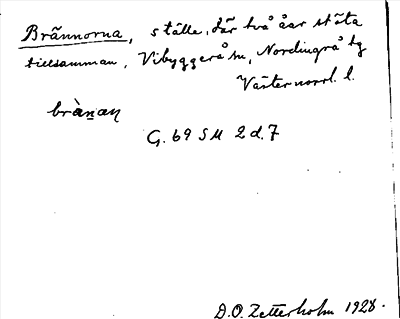 Brännorna, ställe, där två åar stöta
tillsamman, Vibyggerå sn, Nordingrå tg
Västernorrl. l.
brànan
G. 69 S M 2 d. 7
D.O. Zetterholm 1928.